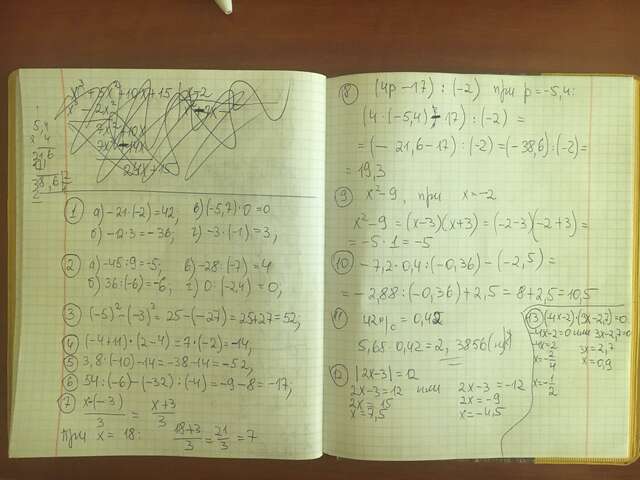 x³ + 5x² + 10x + 15 | x - 2
x³ - 2x²
7x² + 10x
7x² - 14x
24x + 15
5,4
x 4
21,6
17
38,6 | 2
① а) -21·(-2) = 42, в) (-5,7)·0 = 0
б) -12·3 = -36; г) -3·(-1) = 3;
② а) -45:9 = -5; в) -28:(-7) = 4
б) 36:(-6) = -6; г) 0:(-2,4) = 0;
③ (-5)² - (-3)³ = 25 - (-27) = 25 + 27 = 52;
④ (-4+11)·(2-4) = 7·(-2) = -14,
⑤ 3,8·(-10) - 14 = -38 - 14 = -52,
⑥ 54:(-6) - (-32):(-4) = -9 - 8 = -17;
⑦ x-(-3)/3 = x+3/3
При x = 18: 18+3/3 = 21/3 = 7
⑧ (4p - 17):(-2) при p = -5,4:
(4·(-5,4) - 17):(-2) =
= (-21,6 - 17):(-2) = (-38,6):(-2) =
= 19,3
⑨ x² - 9, при x = -2
x² - 9 = (x-3)(x+3) = (-2-3)(-2+3) =
= -5·1 = -5
⑩ -7,2·0,4:(-0,36) - (-2,5) =
= -2,88:(-0,36) + 2,5 = 8 + 2,5 = 10,5
⑪ 42% = 0,42
5,68·0,42 = 2,3856
⑫ |2x-3| = 12
2x-3 = 12 или 2x-3 = -12
2x = 15 2x = -9
x = 7,5 x = -4,5
⑬ (-4x-2)·(3x-2,7) = 0
-4x-2 = 0 или 3x-2,7 = 0
-4x = 2 3x = 2,7
x = -2/4 x = 0,9
x = -1/2